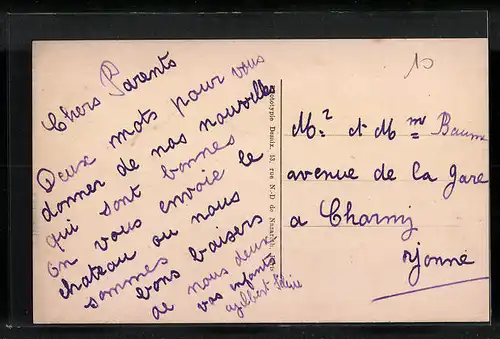 Chers Parents
Deux mots pour vous
donner de nos nouvelles
qui sont bonnes
on vous envoie le
chateau ou nous
sommes
bons baisers
de nous deux
vos enfants
gilbert
M.r et M.me Baum
avenue de la Gare
a Charny
Yonne
Phototypie Daniix, 53, rue N.-D de Nazareth, Paris
10